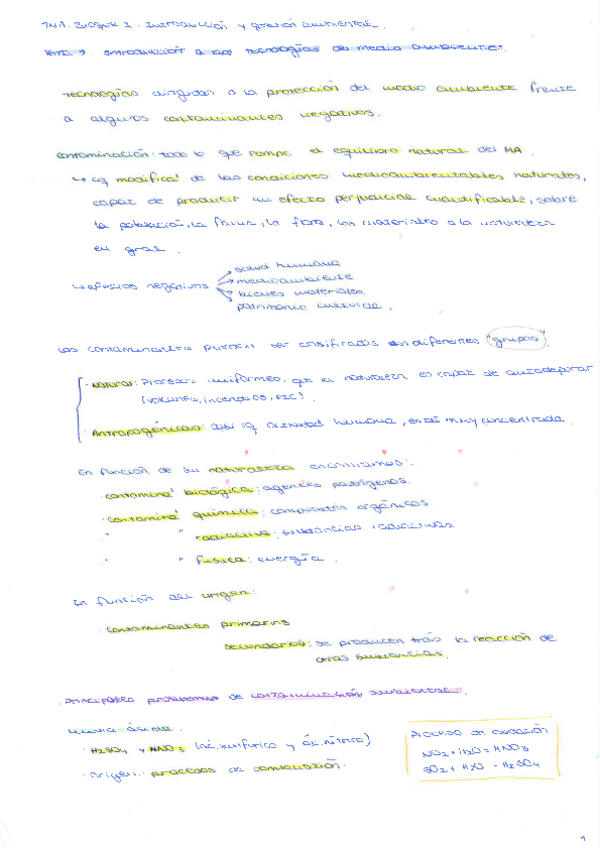 BLOQUE 1. Introducción y gestión ambiental.
introducción a las tecnologías del medio ambiente.
Tecnologías dirigidas a la protección del medio ambiente frente
a algunos contaminantes negativos.
Contaminación: todo lo que rompe el equilibrio natural del MA.
↳ modifica de las condiciones naturales,
capaz de producir un efecto perjudicial cuantificable, sobre
la población, la fauna, la flora, los materiales o la naturaleza
en gral.
↳ efectos negativos
salud humana
medioambiente
bienes materiales.
patrimonio cultural.
Los contaminantes pueden ser clasificados en diferentes "grupos"
· Natural: Procesos, que la naturaleza es capaz de autodepurar
(volcanes, incendios, etc).
· Antropogénicos: actividad humana, está muy concentrada.
En función de su naturaleza encontramos:
· contamina biológica: agentes patógenos.
· contamina química: compuestos orgánicos
" " radiactiva: sustancias radiactivas
" " física: energía.
En función del origen:
· contaminantes primarios
secundarios: se producen tras la reacción de
otras sustancias.
Principales problemas de contaminación ambiental.
Lluvia ácida.
· H2SO4 y HNO3 (ác. sulfúrico y ác. nítrico)
· Origen: procesos de combustión.
Proceso de oxidación
NO2 + H2O = HNO3
SO2 + H2O - H2SO4
1